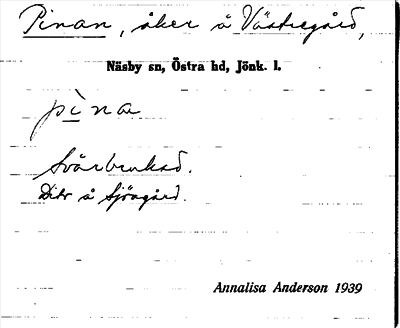 Pinan, åker å Västregård,
Näsby sn, Östra hd, Jönk. l.
pìna
Svårbrukad.
Dito å Sjöagård.
Annalisa Anderson 1939